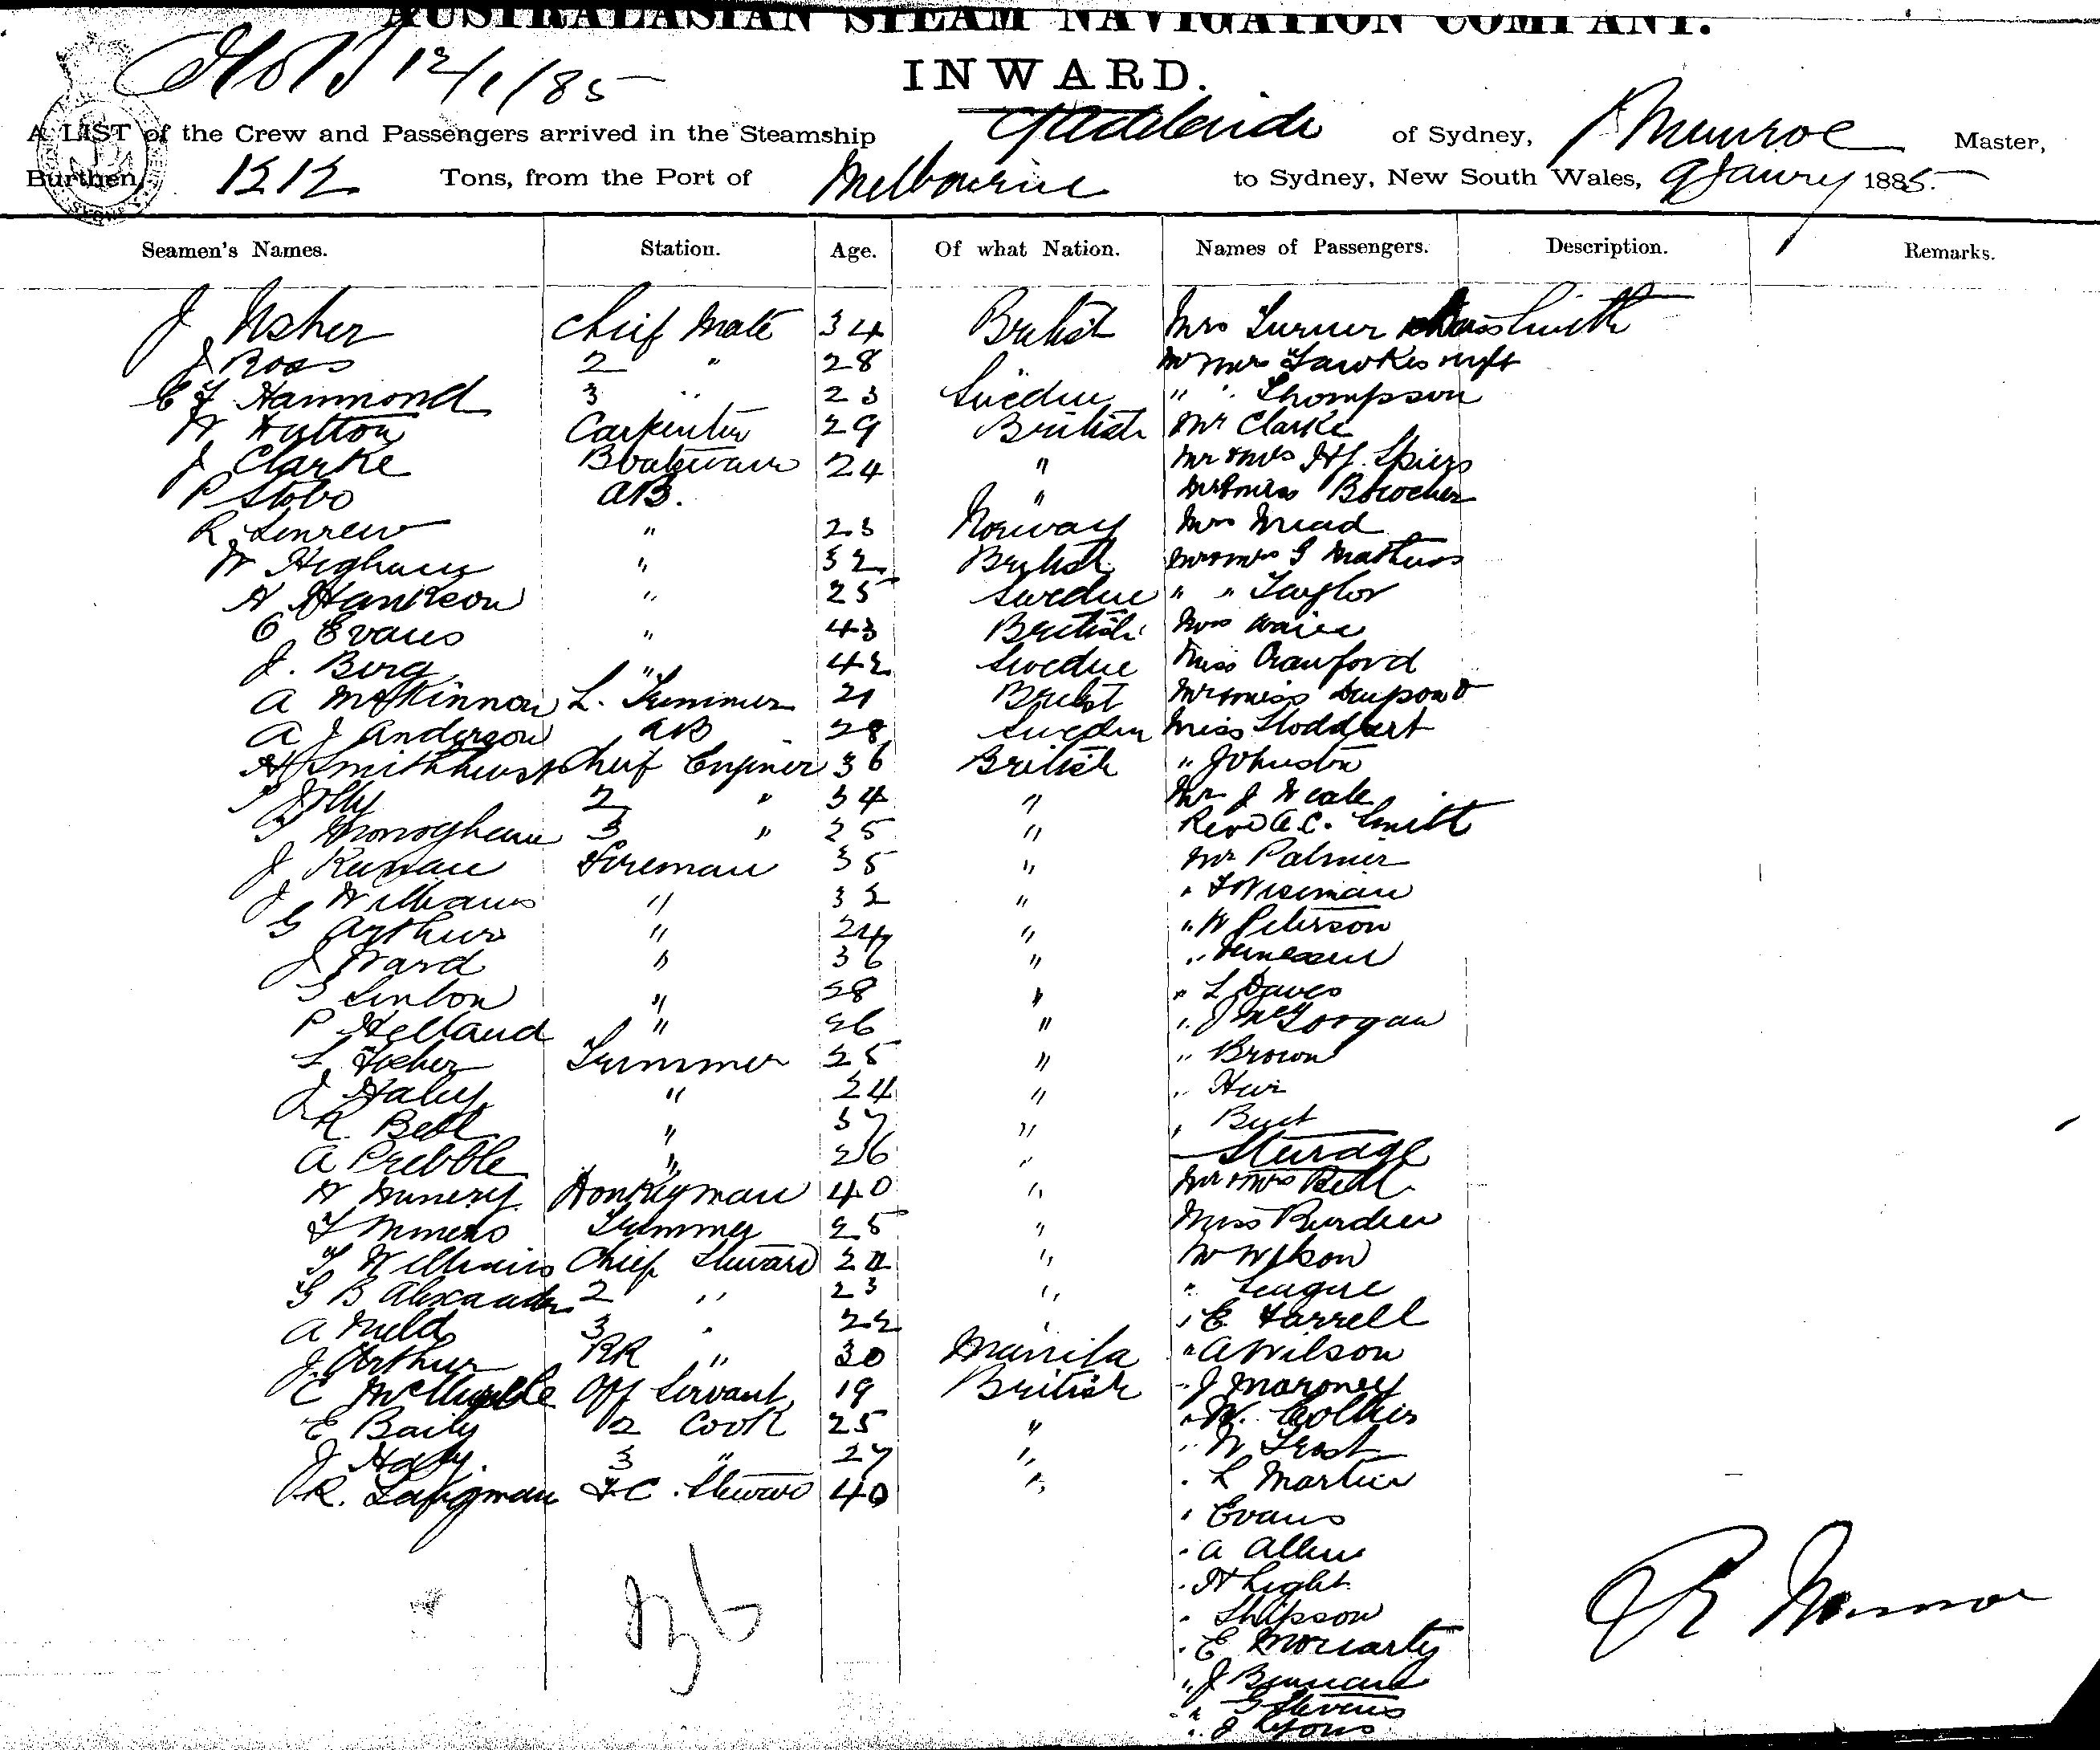 AUSTRALASIAN STEAM NAVIGATION COMPANY.
12/1/85
INWARD.
A LIST of the Crew and Passengers arrived in the Steamship Adelaide of Sydney, Munroe Master,
Burthen, 1212 Tons, from the Port of Melbourne to Sydney, New South Wales, 9 Jany 1885.
Seamen's Names. Station. Age. Of what Nation. Names of Passengers. Description. Remarks.
J Usher Chief Mate 34 British Mrs Turner Miss Smith
J Ross 2 " 28 Mr Mrs Fawkes
E J Hammond 3 " 23 Sweden " " Thompson
W Hutton Carpenter 29 British Mr Clarke
J Clarke Boatswain 24 " Mr & Mrs Spiers
P Stobo AB. "
R 23 Norway Mrs Mead
W Higham " 32 British Mr & Mrs G Mathews
H " 25 Sweden " " Taylor
C Evans " 43 British
J. Berg " 42 Sweden Miss Crawford
A McKinnon L. Trimmer 21 British Mr & Miss
A J Anderson AB 28 Sweden Miss Stoddart
Smithhurst Chief Engineer 36 British " Johnston
Jolly 2 " 34 " Mr J Weale
Monoghan 3 " 25 " Revd A.C. Smith
J Fireman 35 " Mr Palmer
J Williams " 32 " " Wiseman
G Arthur " 24 " " W Peterson
J Ward " 36 "
S Linton " 28 " " L Daves
P Helland " 26 " " J McGorgan
L Fisher Trimmer 25 " " Brown
J Haley " 24 "
R Bell " 37 "
A Prebble " 26 " Sturdge
W Donkeyman 40 " Mr & Mrs Bell
Trimmer 25 " Miss Burdew
T Williams Chief Steward " Mr Wilson
G B Alexander 2 " 23 " " League
A Nield 3 " 22 " E Farrell
J. Arthur RR " 30 Manila " A Wilson
C Off Servant 19 British " J Maroney
E Baily 2 Cook 25 " " W. Collins
J Haly. 3 " 27 "
R. Langman F.C. Steward 40 " " L Martin
" Evans
" A Allen
" H Light
36
" E Moriarty
R Munroe
" J
" G Stevens
" J Lyons